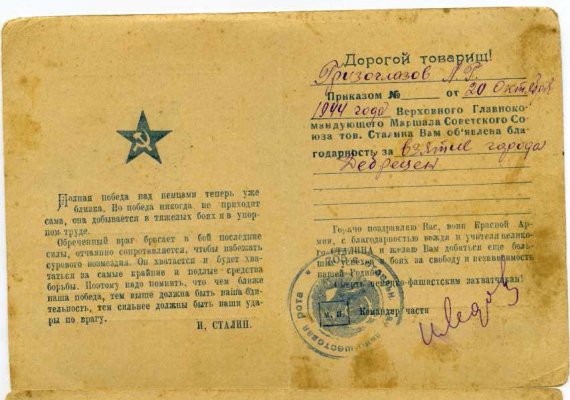 Полная победа над немцами теперь уже
близка. Но победа никогда не приходит
сама, она добывается в тяжелых боях и в упор-
ном труде.
Обреченный враг бросает в бой последние
силы, отчаянно сопротивляется, чтобы избежать
сурового возмездия. Он хватается и будет хва-
таться за самые крайние и подлые средства
борьбы. Поэтому надо помнить, что чем ближе
наша победа, тем выше должна быть наша бди-
тельность, тем сильнее должны быть наши уда-
ры по врагу.
И. СТАЛИН.
Дорогой товарищ!
Гризоглазов
Приказом № от 20 Октября
1944 года Верховного Главноко-
мандующего Маршала Советского Со-
юза тов. Сталина Вам об'явлена бла-
годарность за взятие города
Дебрецен
Горячо поздравляю Вас, воин Красной Ар-
мии, с благодарностью вождя и учителя велико-
го СТАЛИНА и желаю Вам добиться еще боль-
в боях за свободу и независимость
нашей Родины.
Смерть немецко-фашистским захватчикам!
М. П. Командир части
рота